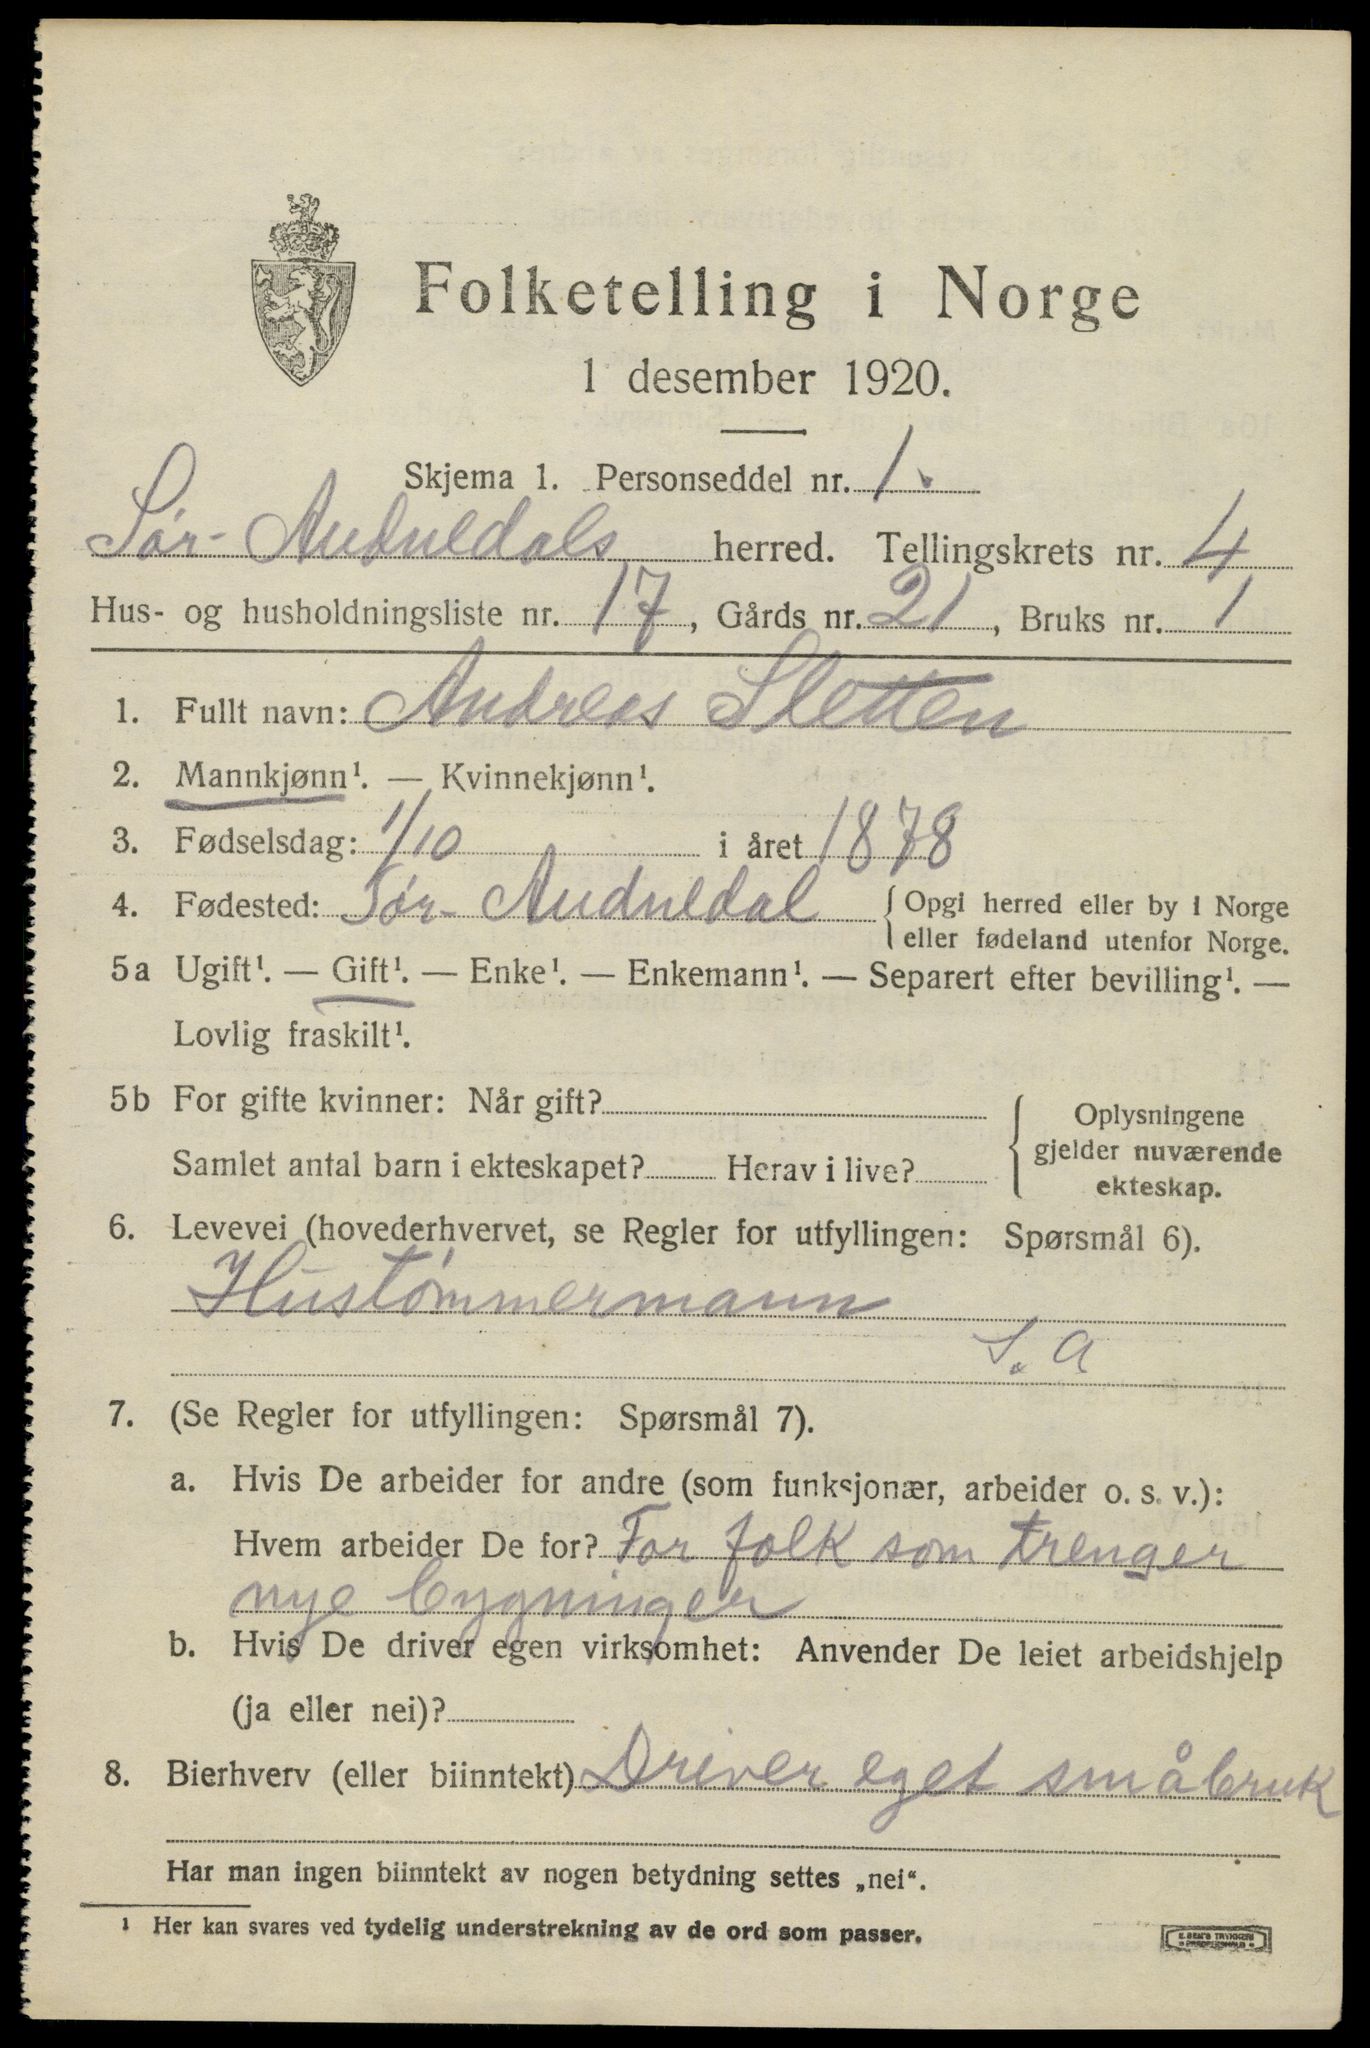 Folketelling i Norge
1 desember 1920.
Skjema 1. Personseddel nr. 1.
Sør-Auduedals herred. Tellingskrets nr. 4
Hus- og husholdningsliste nr. 17, Gårds nr. 21, Bruks nr. 1
1. Fullt navn: Andreas Sletten
2. Mannkjønn¹. — Kvinnekjønn¹.
3. Fødselsdag: 1/10 i året 1878
4. Fødested: Sør-Auduedal { Opgi herred eller by i Norge
eller fødeland utenfor Norge.
5a Ugift¹. — Gift¹. — Enke¹. — Enkemann¹. — Separert efter bevilling¹. —
Lovlig fraskilt¹.
5b For gifte kvinner: Når gift?
Samlet antal barn i ekteskapet? Herav i live?
{ Oplysningene
gjelder nuværende
ekteskap.
6. Levevei (hovederhvervet, se Regler for utfyllingen: Spørsmål 6).
Hustømmermann
S. a
7. (Se Regler for utfyllingen: Spørsmål 7).
a. Hvis De arbeider for andre (som funksjonær, arbeider o. s. v.):
Hvem arbeider De for? For folk som trenger
nye bygninger
b. Hvis De driver egen virksomhet: Anvender De leiet arbeidshjelp
(ja eller nei)?
8. Bierhverv (eller biinntekt) Driver eget småbruk
Har man ingen biinntekt av nogen betydning settes „nei“.
¹ Her kan svares ved tydelig understrekning av de ord som passer.